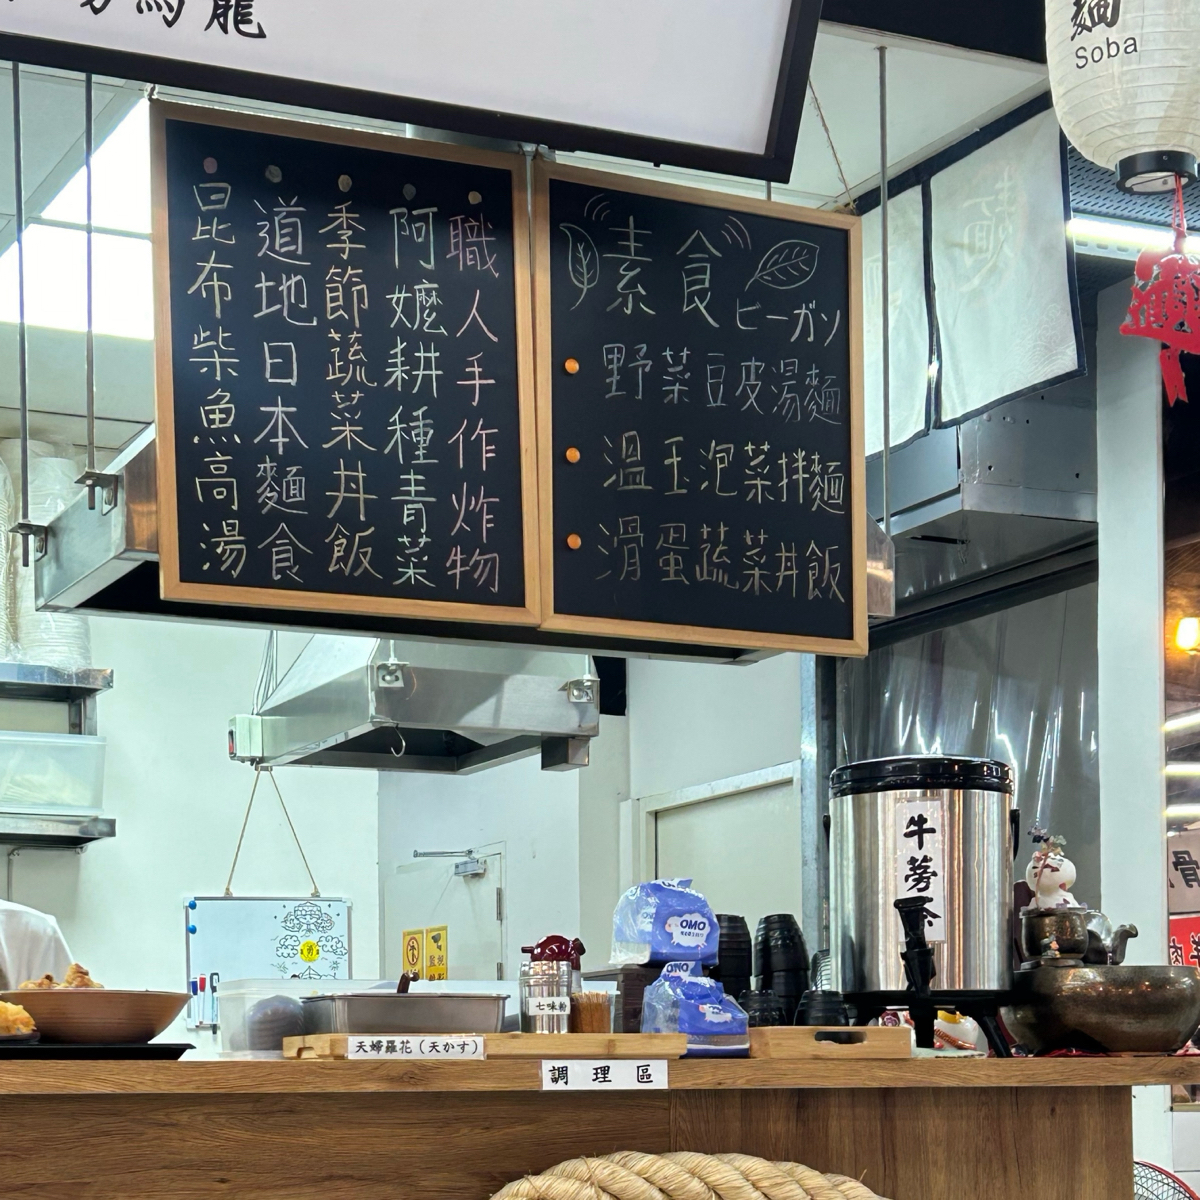 麵
Soba
職人手作炸物
阿嬤耕種青菜
季節蔬菜丼飯
道地日本麵食
昆布柴魚高湯
素食
ビーガン
野菜豆皮湯麵
溫玉泡菜拌麵
滑蛋蔬菜丼飯
牛蒡茶
OMO
OMO
七味粉
天婦羅花(天かす)
調理區